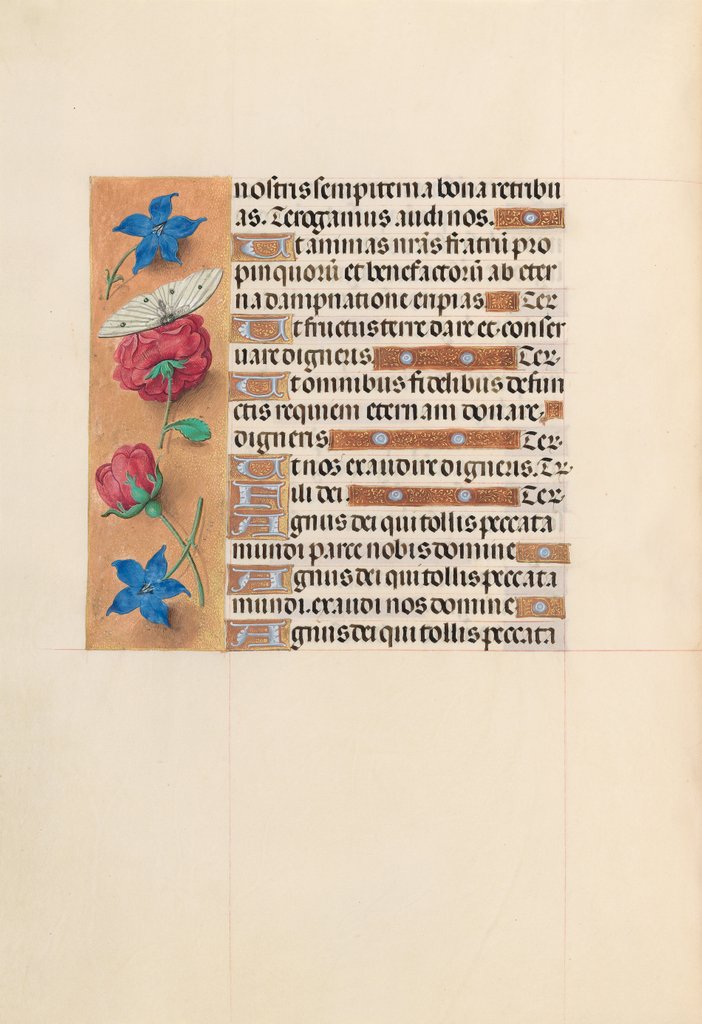 nostris sempiterna bona retribu
as. Te rogamus audi nos.
Ut animas nr̃as fratrũ pro
pinquorũ et benefactorũ ab eter
na dampnatione eripias Te r
Ut fructus terre dare et conser
uare digneris Te r
Ut omnibus fidelibus defun
ctis requiem eternam donare
digneris Te r
Ut nos exaudire digneris. Te r
Fili dei. Te r
Agnus dei qui tollis peccata
mundi parce nobis domine
Agnus dei qui tollis peccata
mundi. exaudi nos domine
Agnus dei qui tollis peccata